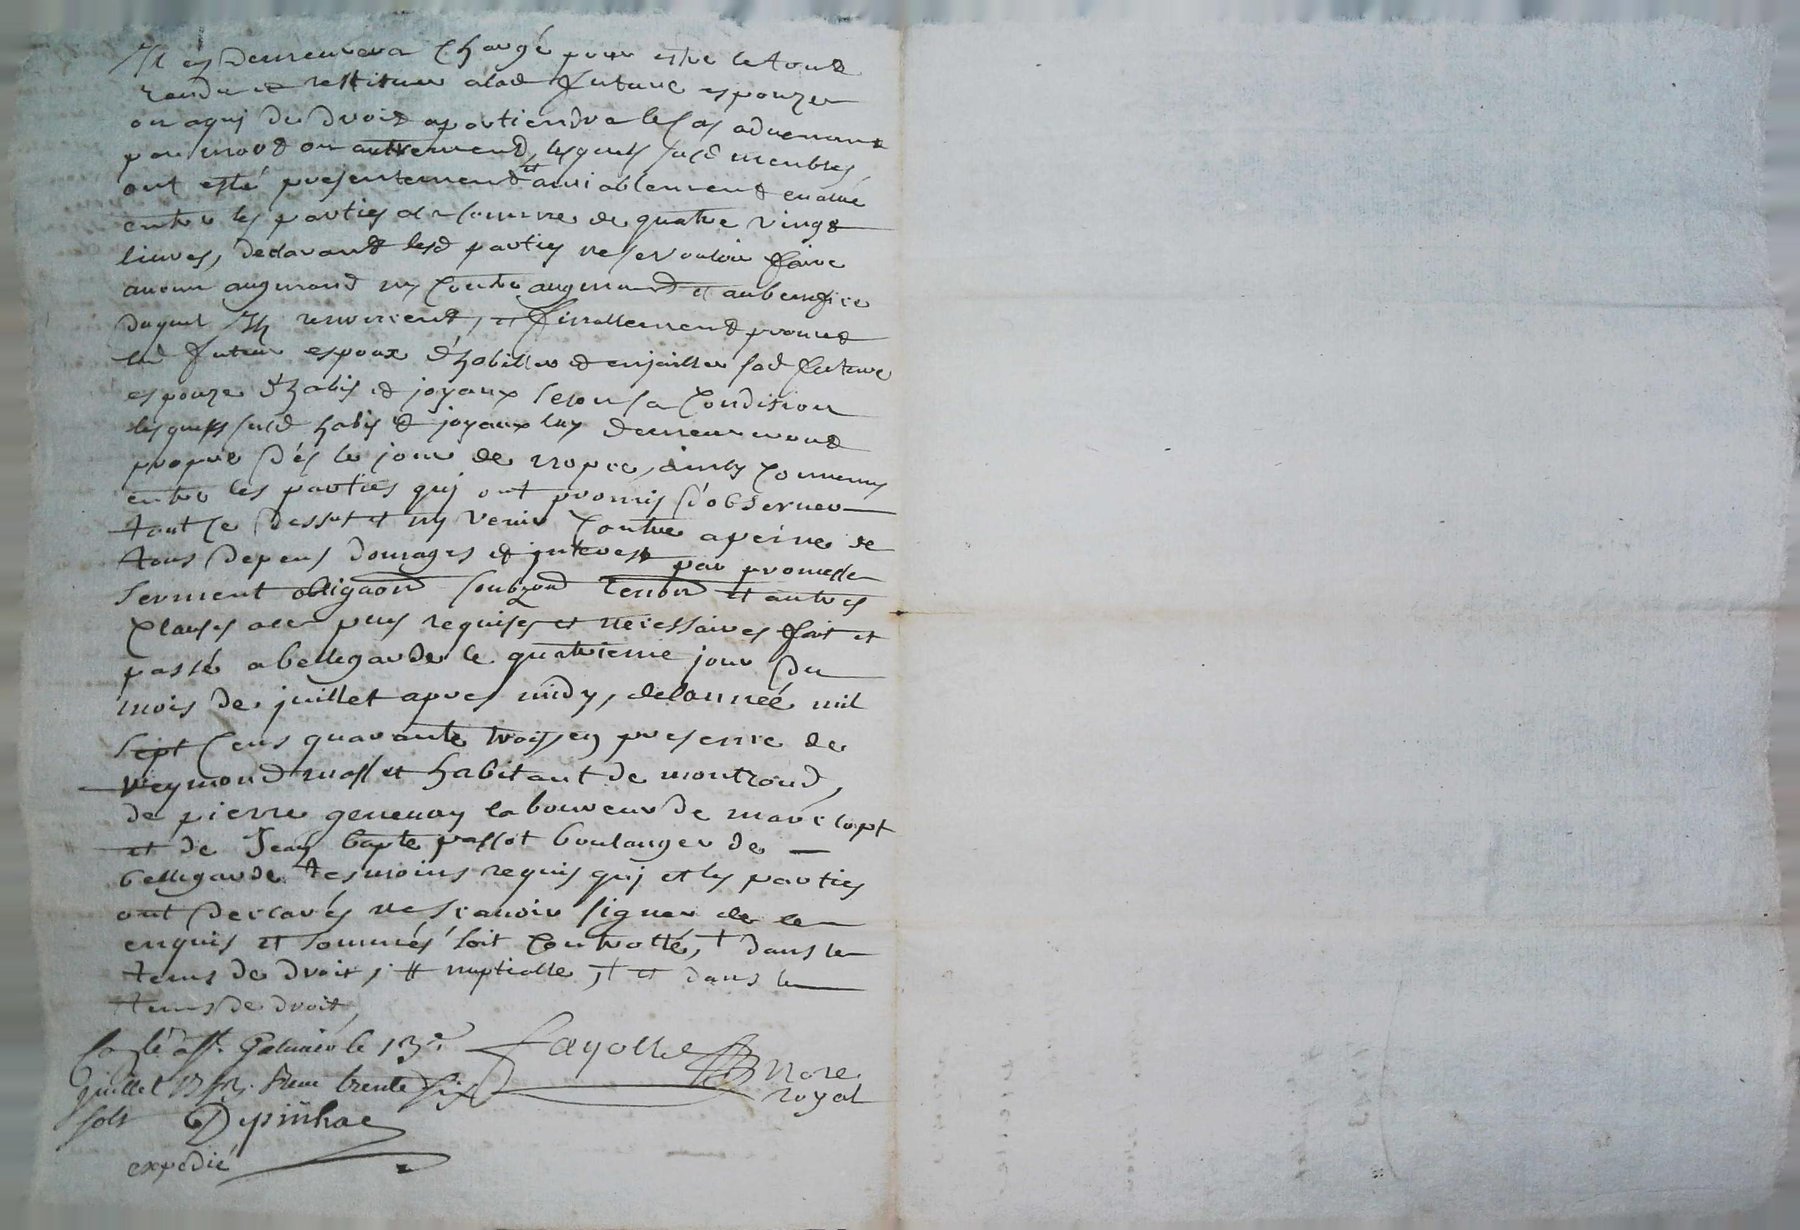 Il en demeurera chargé pour estre le tout
rendu et restituer a lad future espouze
ou a quj de droit apartiendra le cas advenant
par mort ou autrement, lesquels susd meubles
ont esté presentement et amiablement evalué
entre les parties a la somme de quatre vingt
livres, declarant lesd parties ne se vouloir faire
aucun augmand ny contre augmand et au benefice
duquel Ils renoncent, et finallement promet
led futeur espoux d'habiller et enjoailler sad future
espouze d'habis et joyaux selon sa condition
lesquels susd habis et joyaux luy demeureront
propre dés le jour de nopce, ainsy convenu
entre les parties quj ont promis d'observer
tout ce dessus et ny venir contre a peine de
tous depens domages et jnterest par promesse
serment obligaon soubzon renon et autres
clauses a ce plus requises et necessaires fait et
passé a bellegarde le quatrieme jour du
mois de juillet apres midy, de lanneé mil
sept cens quarante trois en presence de
Reymond masset habitant de montrond,
de pierre genevay laboureur de mareclopt
et de Jean bapte passot boulanger de
bellegarde tesmoins requis quj et les parties
ont declarés ne scavoir signer de ce
enquis et sommés soit controllé, + dans le
tems de droit, # nuptialle, + et dans le
tems de droit,
Conlé à St. Galmier le 13e
juillet 1743. Reçu trente six
sols
Fayolle Nore
royal
Depinhac
expedié